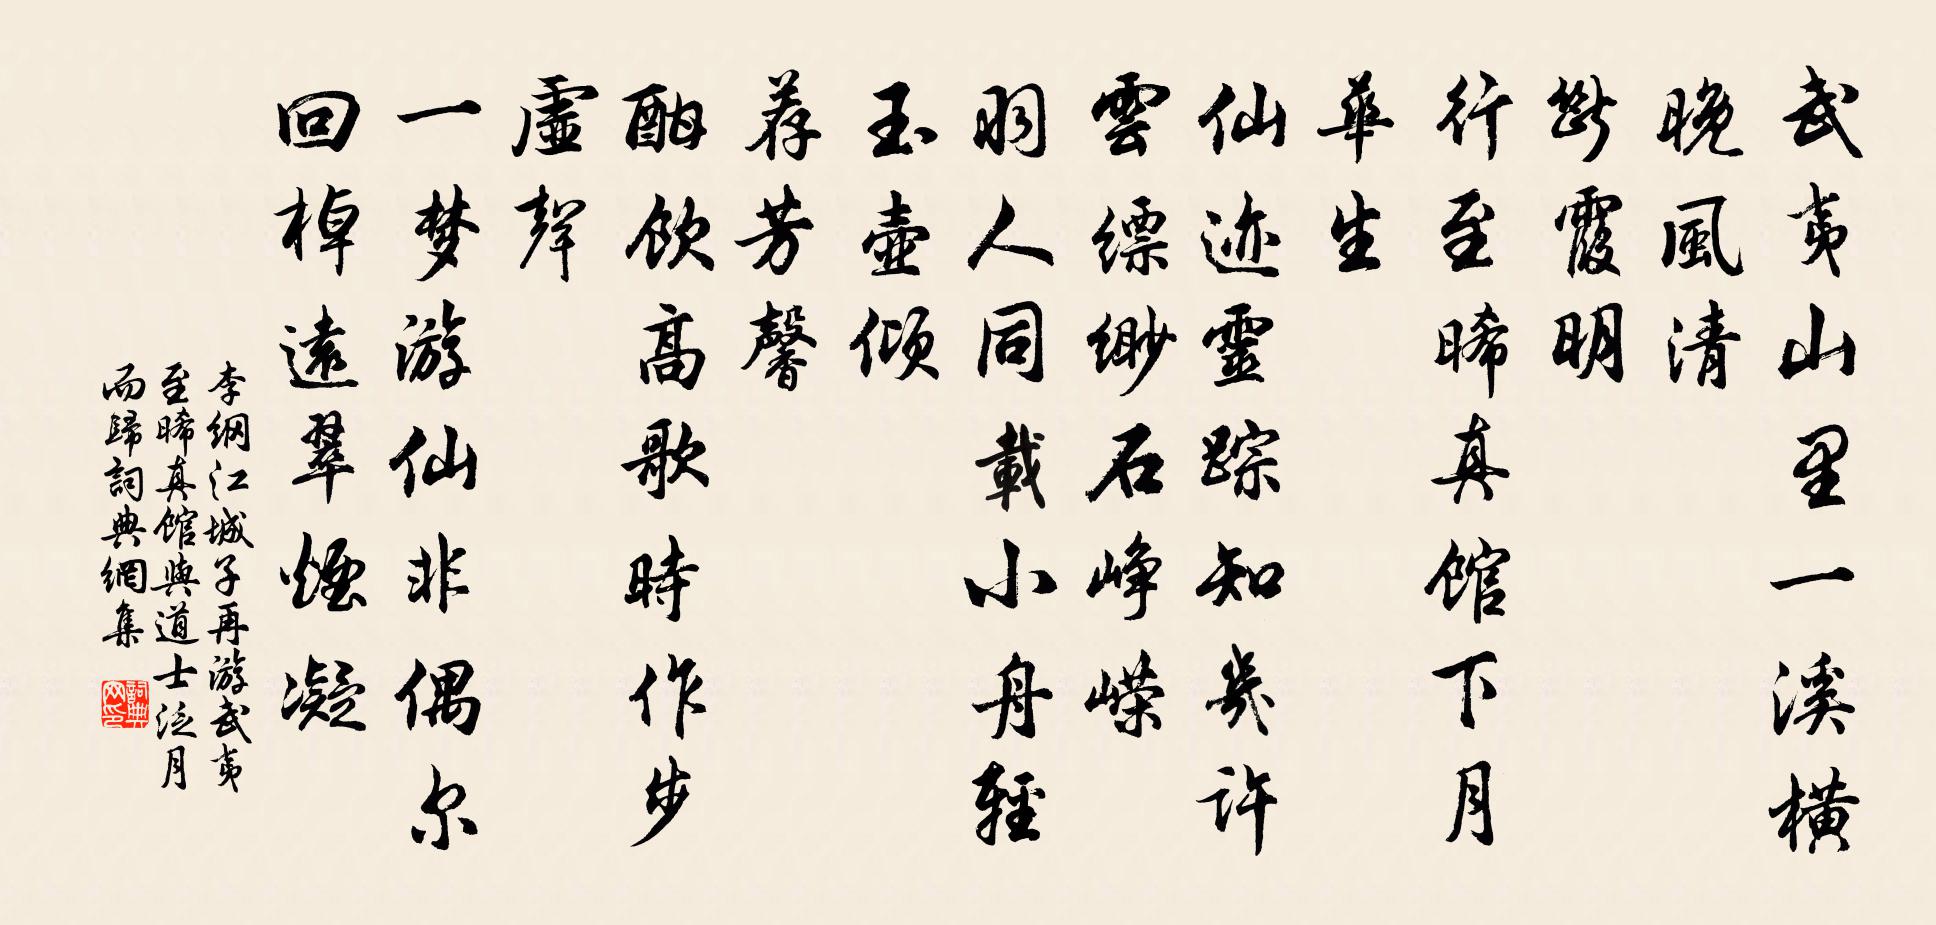 武夷山里一溪橫
晚風清
斷霞明
行至晞真館下月
華生
仙迹靈踪知幾許
雲縹緲石崢嶸
羽人同載小舟輕
玉壺傾
荐芳馨
酣飲高歌時作步
虛聲
一梦游仙非偶尔
回棹遠翠煙凝
李綱江城子再游武夷
至晞真館與道士泛月
而歸詞典網集
詞典网印